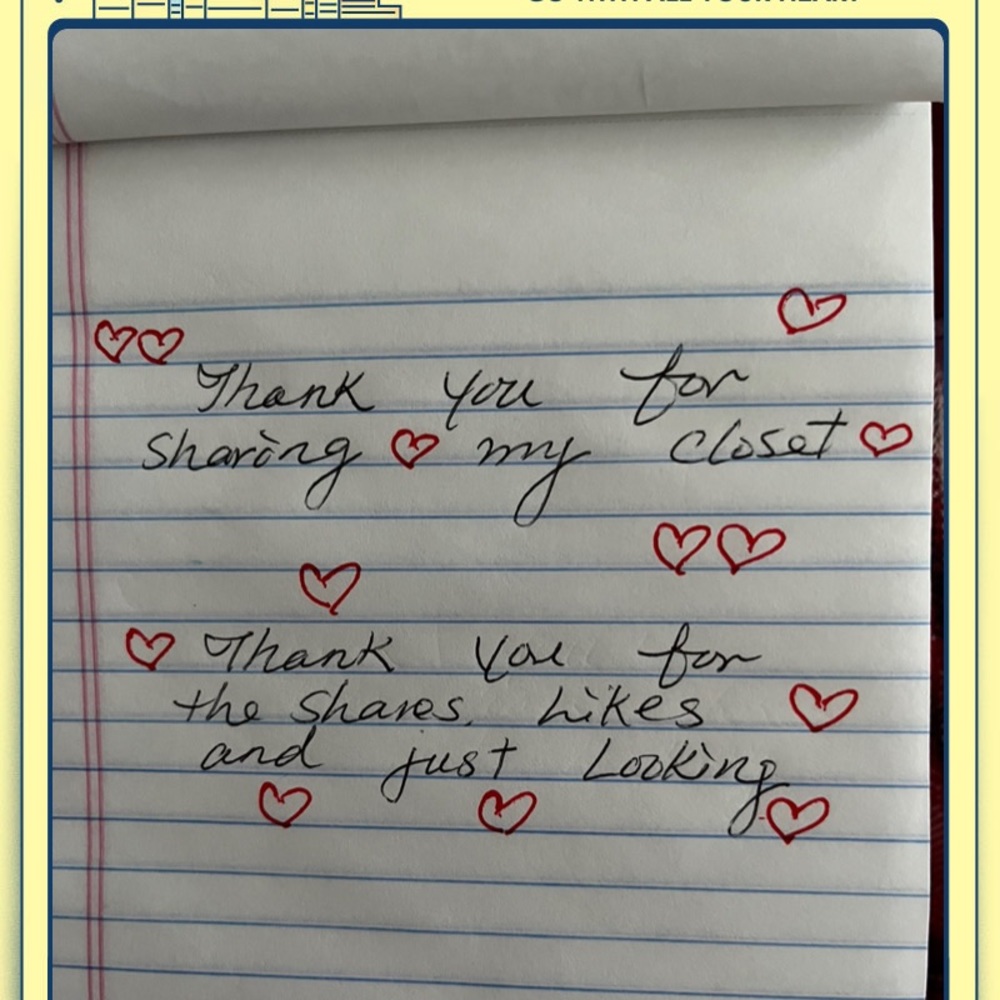 Thank you for
sharing ♥ my closet ♥
Thank you for
the shares. Likes
and just Looking